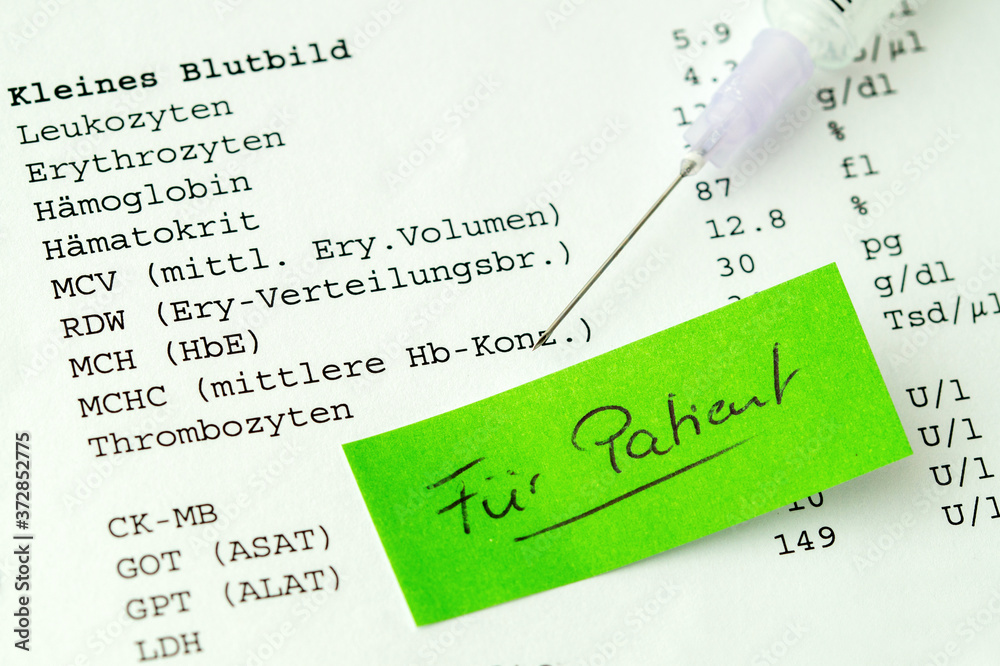 Kleines Blutbild
Leukozyten 5.9
Erythrozyten
Hämoglobin g/dl
Hämatokrit %
MCV (mittl. Ery.Volumen) 87 fl
RDW (Ery-Verteilungsbr.) 12.8 %
MCH (HbE) 30 pg
MCHC (mittlere Hb-Konz.) g/dl
Thrombozyten Tsd/µl
Für Patient
CK-MB U/l
GOT (ASAT) U/l
GPT (ALAT) 10 U/l
LDH 149 U/l
Adobe Stock | #372852775